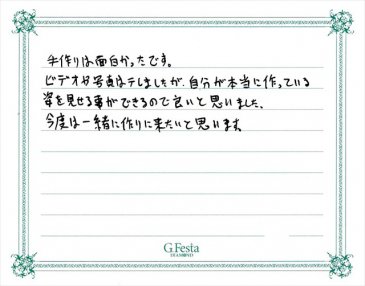 手作りは面白かったです。
ビデオや写真は干しましたが、自分が本当に作っている
姿を見せる事ができるので良いと思いました。
今度は一緒に作りに来たいと思います。
G.Festa
DIAMOND